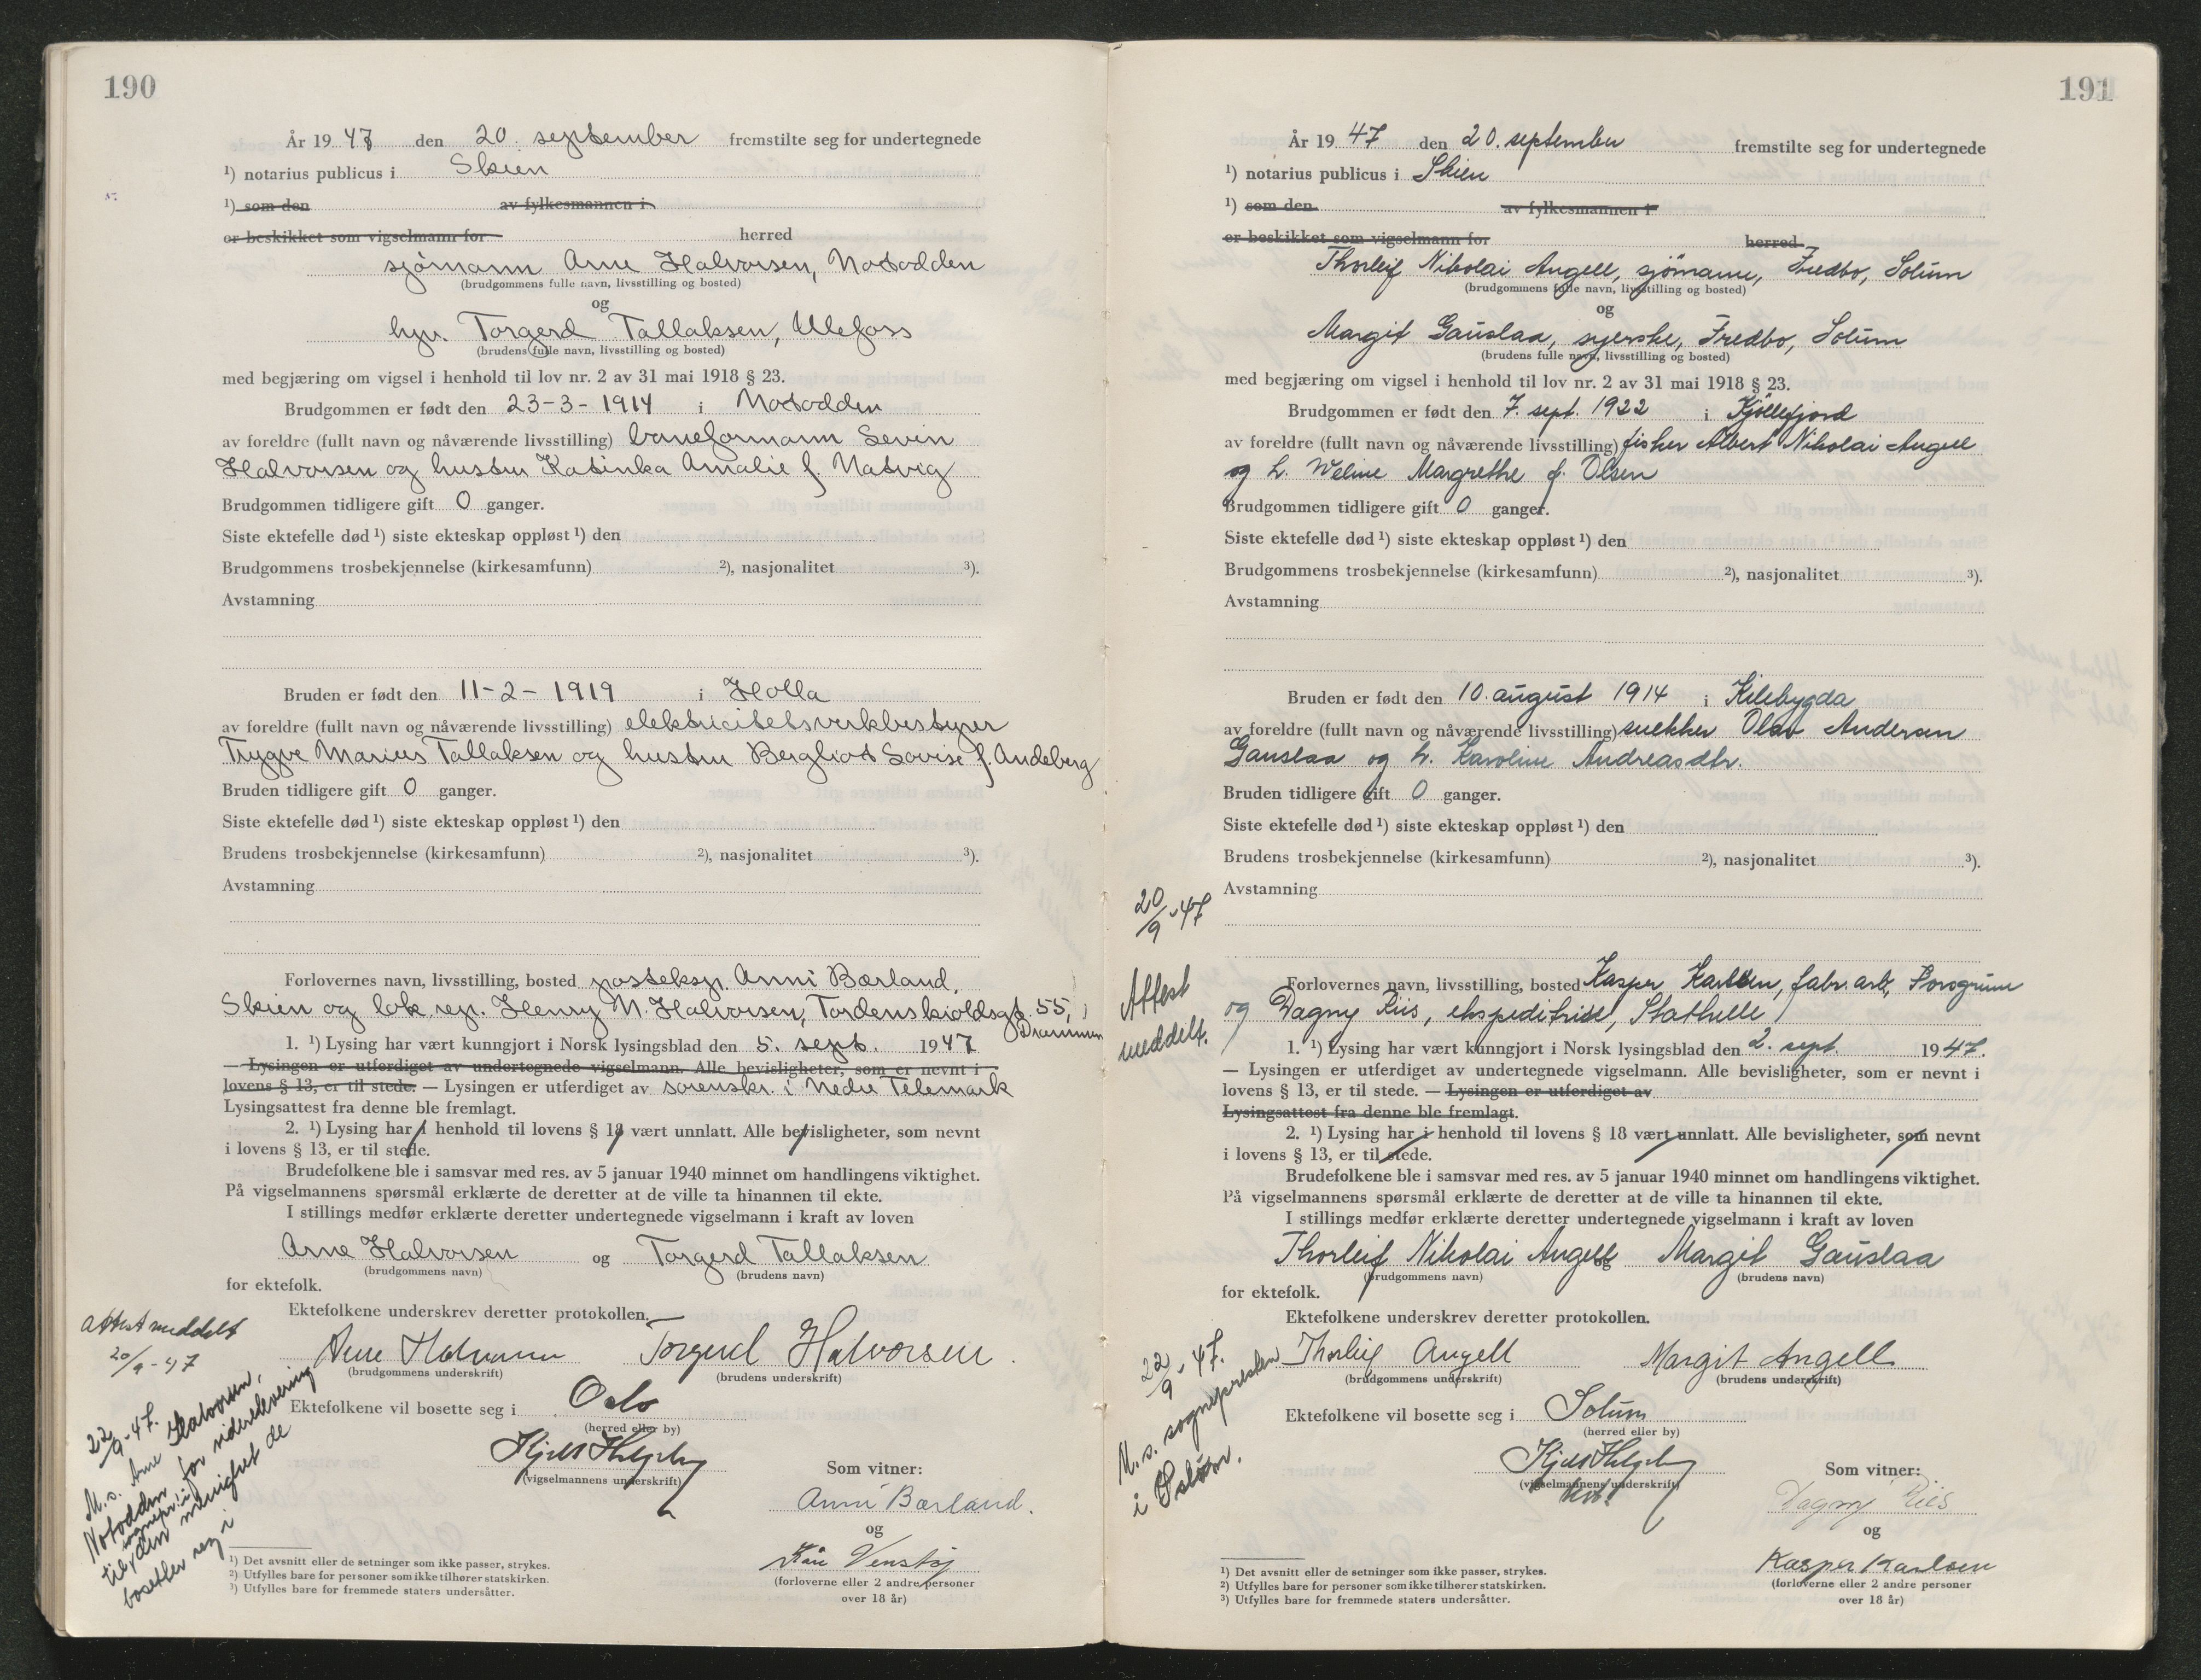 190
År 19 47 den 20. september fremstilte seg for undertegnede
¹) notarius publicus i Skien
¹) som den av fylkesmannen i
er beskikket som vigselmann for herred
sjömann Arne Halvorsen, Notodden
(brudgommens fulle navn, livsstilling og bosted)
og
hjv. Torgerd Tallaksen, Ulefoss
(brudens fulle navn, livsstilling og bosted)
med begjæring om vigsel i henhold til lov nr. 2 av 31 mai 1918 § 23.
Brudgommen er født den 23-3-1914 i Notodden
av foreldre (fullt navn og nåværende livsstilling) baneformann Sevin
Halvorsen og hustru Katinka Amalie f. Natvig
Brudgommen tidligere gift 0 ganger.
Siste ektefelle død ¹) siste ekteskap oppløst ¹) den
Brudgommens trosbekjennelse (kirkesamfunn) ²), nasjonalitet ³).
Avstamning
Bruden er født den 11-2-1919 i Holla
av foreldre (fullt navn og nåværende livsstilling) elektricitetsverkbestyrer
Trygve Marius Tallaksen og hustru Bergliot Lovise f. Andeberg
Bruden tidligere gift 0 ganger.
Siste ektefelle død ¹) siste ekteskap oppløst ¹) den
Brudens trosbekjennelse (kirkesamfunn) ²), nasjonalitet ³).
Avstamning
Forlovernes navn, livsstilling, bosted posteksp. Anni Bærland,
Skien og lok rep. Henry M. Halvorsen, Tordenskioldsgt. 55,
Drammen
1. ¹) Lysing har vært kunngjort i Norsk lysingsblad den 5. sept. 1947
— Lysingen er utferdiget av undertegnede vigselmann. Alle bevisligheter, som er nevnt i
lovens § 13, er til stede. — Lysingen er utferdiget av sorenskr. i Nedre Telemark
Lysingsattest fra denne ble fremlagt.
2. ¹) Lysing har i henhold til lovens § 18 vært unnlatt. Alle bevisligheter, som nevnt
i lovens § 13, er til stede.
Brudefolkene ble i samsvar med res. av 5 januar 1940 minnet om handlingens viktighet.
På vigselmannens spørsmål erklærte de deretter at de ville ta hinannen til ekte.
I stillings medfør erklærte deretter undertegnede vigselmann i kraft av loven
Arne Halvorsen og Torgerd Tallaksen
(brudgommens navn) (brudens navn)
for ektefolk.
Ektefolkene underskrev deretter protokollen.
Attest meddelt
20/9-47
Arne Halvorsen Torgerd Halvorsen.
(brudgommens underskrift) (brudens underskrift)
Ektefolkene vil bosette seg i Oslo
(herred eller by)
22/9-47.
M.s. Arne Halvorsen,
Notodden for viderelevering
til sognepr. i
den menighet de
bosetter seg i
Kjell Helgeby
(vigselmannens underskrift)
Som vitner:
Anni Bærland.
og
Kåre Venstøj
(forloverne eller 2 andre personer
over 18 år)
¹) Det avsnitt eller de setninger som ikke passer, strykes.
²) Utfylles bare for personer som ikke tilhører statskirken.
³) Utfylles bare for fremmede staters undersåtter.
191
År 19 47 den 20. september fremstilte seg for undertegnede
¹) notarius publicus i Skien
¹) som den av fylkesmannen i
er beskikket som vigselmann for herred
Thorleif Nikolai Angell, sjömann, Fredbo, Solum
(brudgommens fulle navn, livsstilling og bosted)
og
Margit Gauslaa, syerske, Fredbo, Solum
(brudens fulle navn, livsstilling og bosted)
med begjæring om vigsel i henhold til lov nr. 2 av 31 mai 1918 § 23.
Brudgommen er født den 7. sept. 1922 i Kjöllefjord
av foreldre (fullt navn og nåværende livsstilling) fisker Albert Nikolai Angell
og h. Weline Margrethe f. Olsen
Brudgommen tidligere gift 0 ganger.
Siste ektefelle død ¹) siste ekteskap oppløst ¹) den
Brudgommens trosbekjennelse (kirkesamfunn) ²), nasjonalitet ³).
Avstamning
Bruden er født den 10. august 1914 i Kilebygda
av foreldre (fullt navn og nåværende livsstilling) snekker Olav Andersen
Gauslaa og h. Karoline Andreasdtr.
Bruden tidligere gift 0 ganger.
Siste ektefelle død ¹) siste ekteskap oppløst ¹) den
Brudens trosbekjennelse (kirkesamfunn) ²), nasjonalitet ³).
Avstamning
20/9-47
Attest
meddelt.
Forlovernes navn, livsstilling, bosted Kasper Karlsen, fabr. arb, Porsgrunn
og Dagny Riis, ekspeditrise, Stathelle
1. ¹) Lysing har vært kunngjort i Norsk lysingsblad den 2. sept. 1947.
— Lysingen er utferdiget av undertegnede vigselmann. Alle bevisligheter, som er nevnt i
lovens § 13, er til stede. — Lysingen er utferdiget av
Lysingsattest fra denne ble fremlagt.
2. ¹) Lysing har i henhold til lovens § 18 vært unnlatt. Alle bevisligheter, som nevnt
i lovens § 13, er til stede.
Brudefolkene ble i samsvar med res. av 5 januar 1940 minnet om handlingens viktighet.
På vigselmannens spørsmål erklærte de deretter at de ville ta hinannen til ekte.
I stillings medfør erklærte deretter undertegnede vigselmann i kraft av loven
Thorleif Nikolai Angell og Margit Gauslaa
(brudgommens navn) (brudens navn)
for ektefolk.
Ektefolkene underskrev deretter protokollen.
22/9-47.
M.s. sognepresten
i Solum.
Thorleif Angell Margit Angell
(brudgommens underskrift) (brudens underskrift)
Ektefolkene vil bosette seg i Solum
(herred eller by)
Kjell Helgeby
(vigselmannens underskrift)
Som vitner:
Dagny Riis
og
Kasper Karlsen
(forloverne eller 2 andre personer
over 18 år)
¹) Det avsnitt eller de setninger som ikke passer, strykes.
²) Utfylles bare for personer som ikke tilhører statskirken.
³) Utfylles bare for fremmede staters undersåtter.